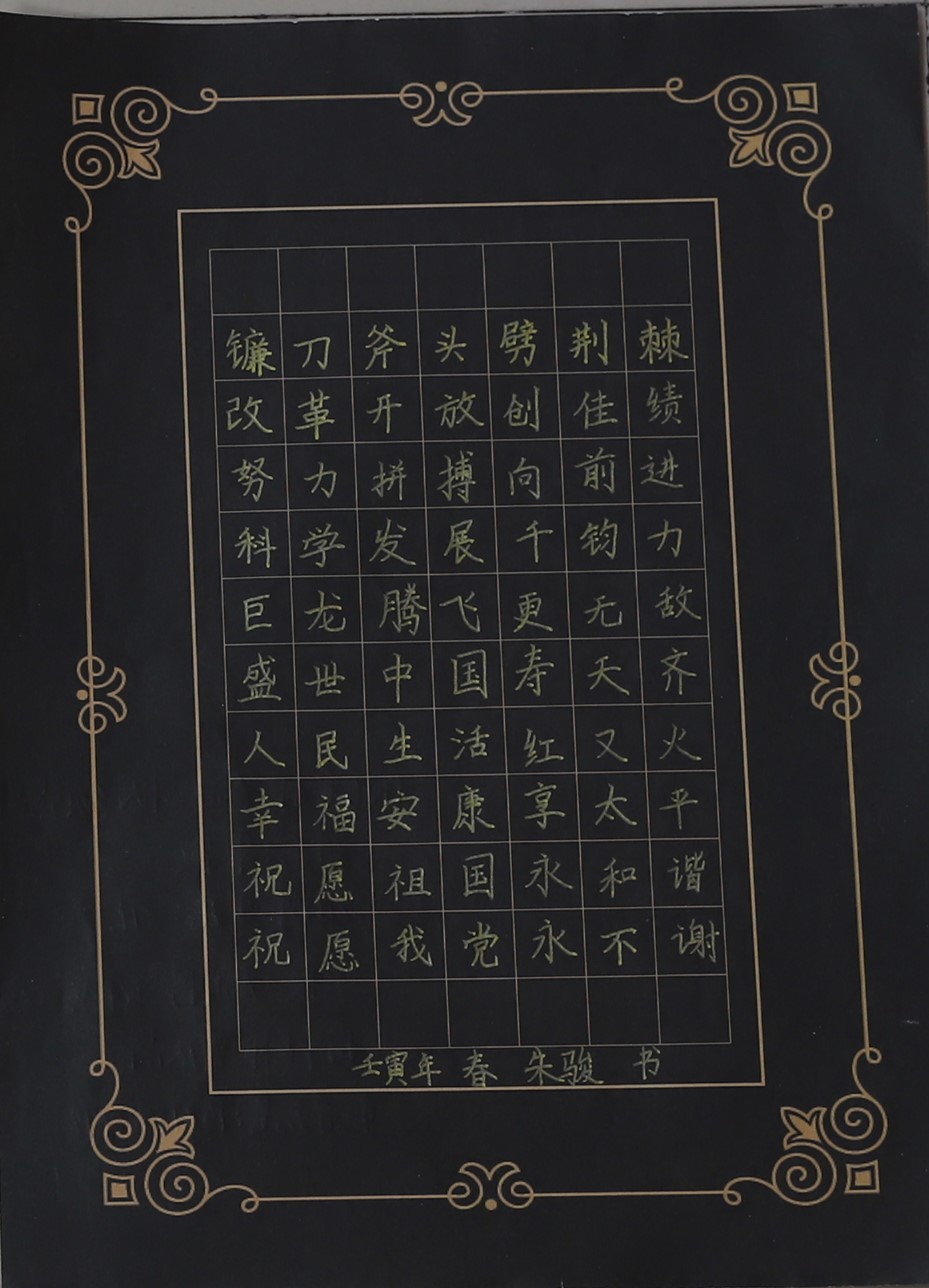 镰刀斧头劈荆棘
改革开放创佳绩
努力拼搏向前进
科学发展千钧力
巨龙腾飞更无敌
盛世中国寿天齐
人民生活红又火
幸福安康享太平
祝愿祖国永和谐
祝愿我党永不谢
壬寅年 春 朱骏 书